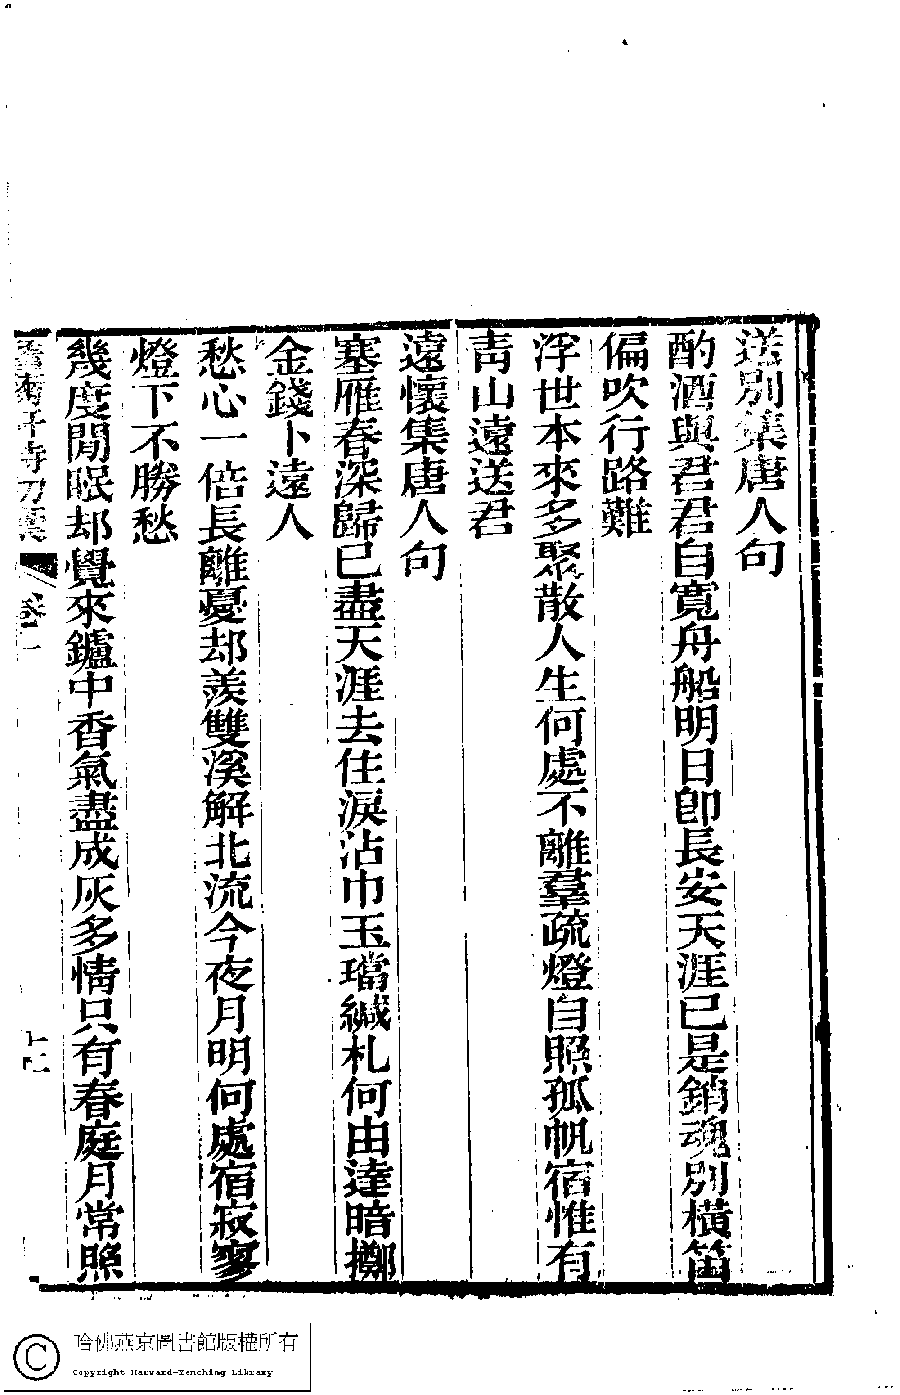 送別集唐人句
酌酒與君君自寬舟船明日卽長安天涯已是銷魂別橫笛
偏吹行路難
浮世本來多聚散人生何處不離羣疏燈自照孤帆宿惟有
靑山遠送君
遠懷集唐人句
塞雁春深歸已盡天涯去住淚沾巾玉璫緘札何由達暗擲
金錢卜遠人
愁心一倍長離憂却羨雙溪解北流今夜月明何處宿寂寥
燈下不勝愁
幾度閒眠却覺來鑪中香氣盡成灰多情只有春庭月常照
卷一
哈佛燕京圖書館版權所有
Copyright Harvard-Yenching Library